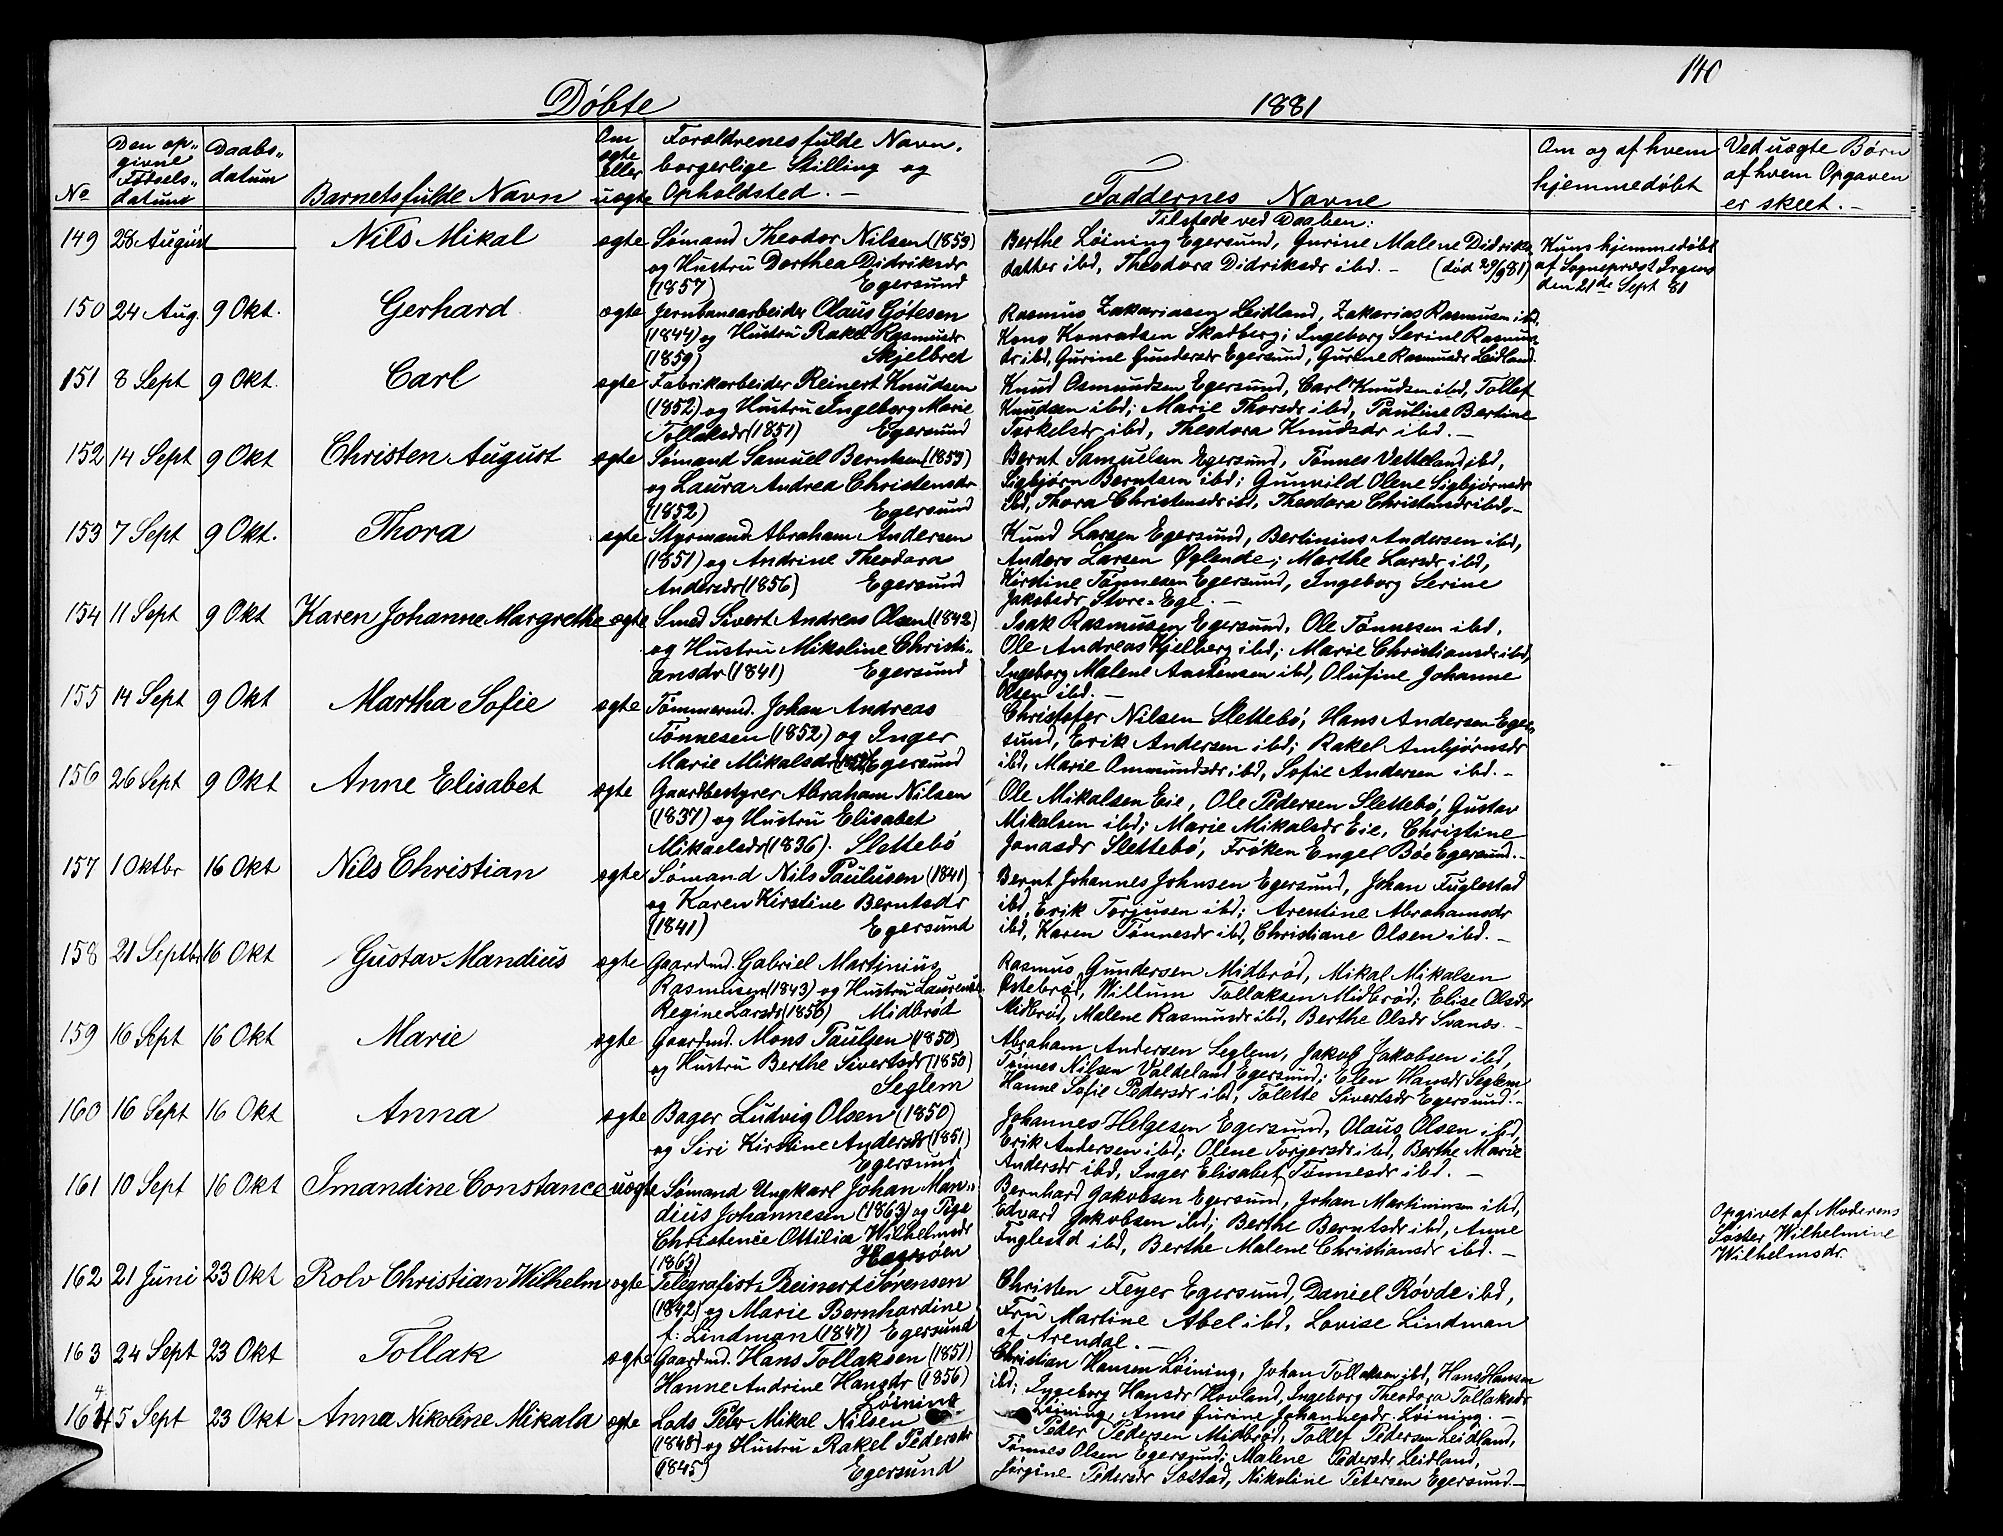 140
Døbte 1881
No
Den op-
givne
Fødsels-
datum
Daabs-
datum
Barnets fulde Navn
Om
ægte
eller
uægte
Forældrenes fulde Navn,
borgerlige Stilling og
Opholdsted. —
Faddernes Navne
Om og af hvem
hjemmedøbt
Ved uægte Børn
af hvem Opgaven
er skeet. —
Tilstede ved Daaben:
149 28 August Nils Mikal ægte Sømand Theodor Nilsen (1859)
og Hustru Dorthea Didriksdr
(1857) Egersund
Berthe Løining Egersund, Gurine Malene Didriks-
datter ibd, Theodora Didriksdr ibd. — (død 29/9 81)
Kuns hjemmedøbt
af Sognepræst Irgens
den 21de Sept 81
150 24 Aug. 9 Okt. Gerhard ægte Jernbanearbeider Olaus Gjøtesen
(1844) og Hustru Rakel Rasmusdr
(1859) Skjelbred
Rasmus Zakariasen Leidland, Zakarias Rasmusen ibd,
Kons Konradsen Skadberg; Ingeborg Serine Rasmus-
dr ibd, Gurine Gundersdr Egersund, Gurine Rasmusdr Leidland.
151 8 Sept 9 Okt. Carl ægte Fabrikarbeider Reinert Knudsen
(1852) og Hustru Ingeborg Marie
Tollaksdr (1851) Egersund
Knud Osmundsen Egersund, Carl Knudsen ibd, Tollef
Knudsen ibd; Marie Thorsdr ibd, Pauline Bertine
Torkelsdr ibd, Theodora Knudsdr ibd. —
152 14 Sept 9 Okt Christen August ægte Sømand Samuel Berntsen (1859)
og Laura Andrea Christensdr
(1852) Egersund
Bernt Samuelsen Egersund, Tønnes Vetteland ibd,
Sigbjørn Berntsen ibd; Gunvild Olene Sigbjørnsdr
ibd, Thora Christensdr ibd, Theodora Christensdr ibd. —
153 7 Sept 9 Okt. Thora ægte Styrmand Abraham Andersen
(1851) og Andrine Theodora
Andersdr (1856) Egersund
Knud Larsen Egersund, Bertinius Andersen ibd,
Anders Larsen Øglende; Marthe Larsdr ibd,
Kirstine Tønnesen Egersund, Ingeborg Serine
Jakobsdr Store-Ege. —
154 11 Sept 9 Okt Karen Johanne Margrethe ægte Smed Sivert Andreas Olsen (1842)
og Hustru Mikoline Christi-
ansdr (1841) Egersund
Isak Rasmusen Egersund, Ole Tønnesen ibd,
Ole Andreas Kjelberg ibd; Marie Christiansdr ibd,
Ingeborg Malene Austensen ibd, Olufine Johanne
Olsen ibd. —
155 14 Sept 9 Okt Martha Sofie ægte Tømmermd. Johan Andreas
Tønnesen (1852) og Inger
Marie Mikalsdr Egersund
Christofer Nilsen Slettebø, Hans Andersen Eger-
sund, Erik Andersen ibd; Rakel Ambjørnsdr
ibd, Marie Ommundsdr ibd, Sofie Andersen ibd. —
156 26 Sept 9 Okt Anne Elisabet ægte Gaardbestyrer Abraham Nilsen
(1837) og Hustru Elisabet
Mikaelsdr (1836). Slettebø
Ole Mikalsen Eie, Ole Pedersen Slettebø, Gustav
Mikalsen ibd; Marie Mikalsdr Eie, Christine
Jonasdr Slettebø, Frøken Engel Bøe Egersund. —
157 1 Oktbr 16 Okt Nils Christian ægte Sømand Nils Paulusen (1841)
og Karen Kirstine Berntsdr
(1841) Egersund
Bernt Johannes Johnsen Egersund, Johan Fuglestad
ibd, Erik Torjusen ibd; Arentine Abrahamsdr
ibd, Karen Tønnesdr ibd, Christiane Olsen ibd. —
158 21 Septbr 16 Okt Gustav Mandius ægte Gaardmd. Gabriel Martinius
Rasmusen (1843) og Hustru Laurense
Regine Larsdr (1856) Midbrød
Rasmus Gundersen Midbrød, Mikal Mikalsen
Østebrød, Willum Tollaksen Midbrød; Elise Olsdr
Midbrød, Malene Rasmusdr ibd, Berthe Olsdr Svanes. —
159 16 Sept 16 Okt Marie ægte Gaardmd. Mons Paulsen (1850)
og Hustru Berthe Sivertsdr (1850)
Seglem
Abraham Andersen Seglem, Jakob Jakobsen ibd,
Tønnes Nilsen Valdeland Egersund; Elen Hansdr Seglem
Hanne Sofie Pedersdr ibd, Tolette Sivertsdr Egersund. —
160 16 Sept 16 Okt Anna ægte Bager Ludvig Olsen (1850)
og Siri Kirstine Andersdr (1851)
Egersund
Johannes Helgesen Egersund, Olaus Olsen ibd,
Erik Andersen ibd; Olene Torgersdr ibd, Berthe Marie
Andersdr ibd, Inger Elisabet Tønnesdr ibd. —
161 10 Sept 16 Okt Imandine Constance uægte Sømand Ungkarl Johan Man-
dius Johannesen (1863) og Pige
Christence Ottilia Wilhelmsdr
(1863)
Bernhard Jakobsen Egersund, Johan Martinsen ibd,
Edvard Jakobsen ibd; Berthe Berntsdr ibd, Anne
Fuglestd ibd, Berthe Malene Christiansdr ibd. —
Opgivet af Moderens
Søster Wilhelmine
Wilhelmsdr.
162 21 Juni 23 Okt Rolv Christian Wilhelm ægte Telegrafist Reinert Sørensen
(1842) og Marie Bernhardine
f: Lindman (1847) Egersund
Christen Feyer Egersund, Daniel Røvde ibd,
Fru Martine Abel ibd, Lovise Lindman
af Arendal. —
163 24 Sept 23 Okt Tollak ægte Gaardmd. Hans Tollaksen (1851)
Hanne Andrine Hansdr (1856)
Løining
Christian Hansen Løining, Johan Tollaksen ibd, Hans Hansen
ibd; Ingeborg Hansdr Hovland, Ingeborg Theodora Tollaksdr
Løining, Anne Gurine Johannesdr Løining. —
164 5 Sept 23 Okt Anna Nikoline Mikala ægte Lods Peter Mikal Nilsen
(1848) og Hustru Rakel Pedersdr
(1845) Egersund
Peder Pedersen Midbrød, Tollef Pedersen Leidland,
Tønnes Olsen Egersund; Malene Pedersdr Leidland,
Jørgine Pedersdr Søstad, Nikoline Petersen Egersund. —